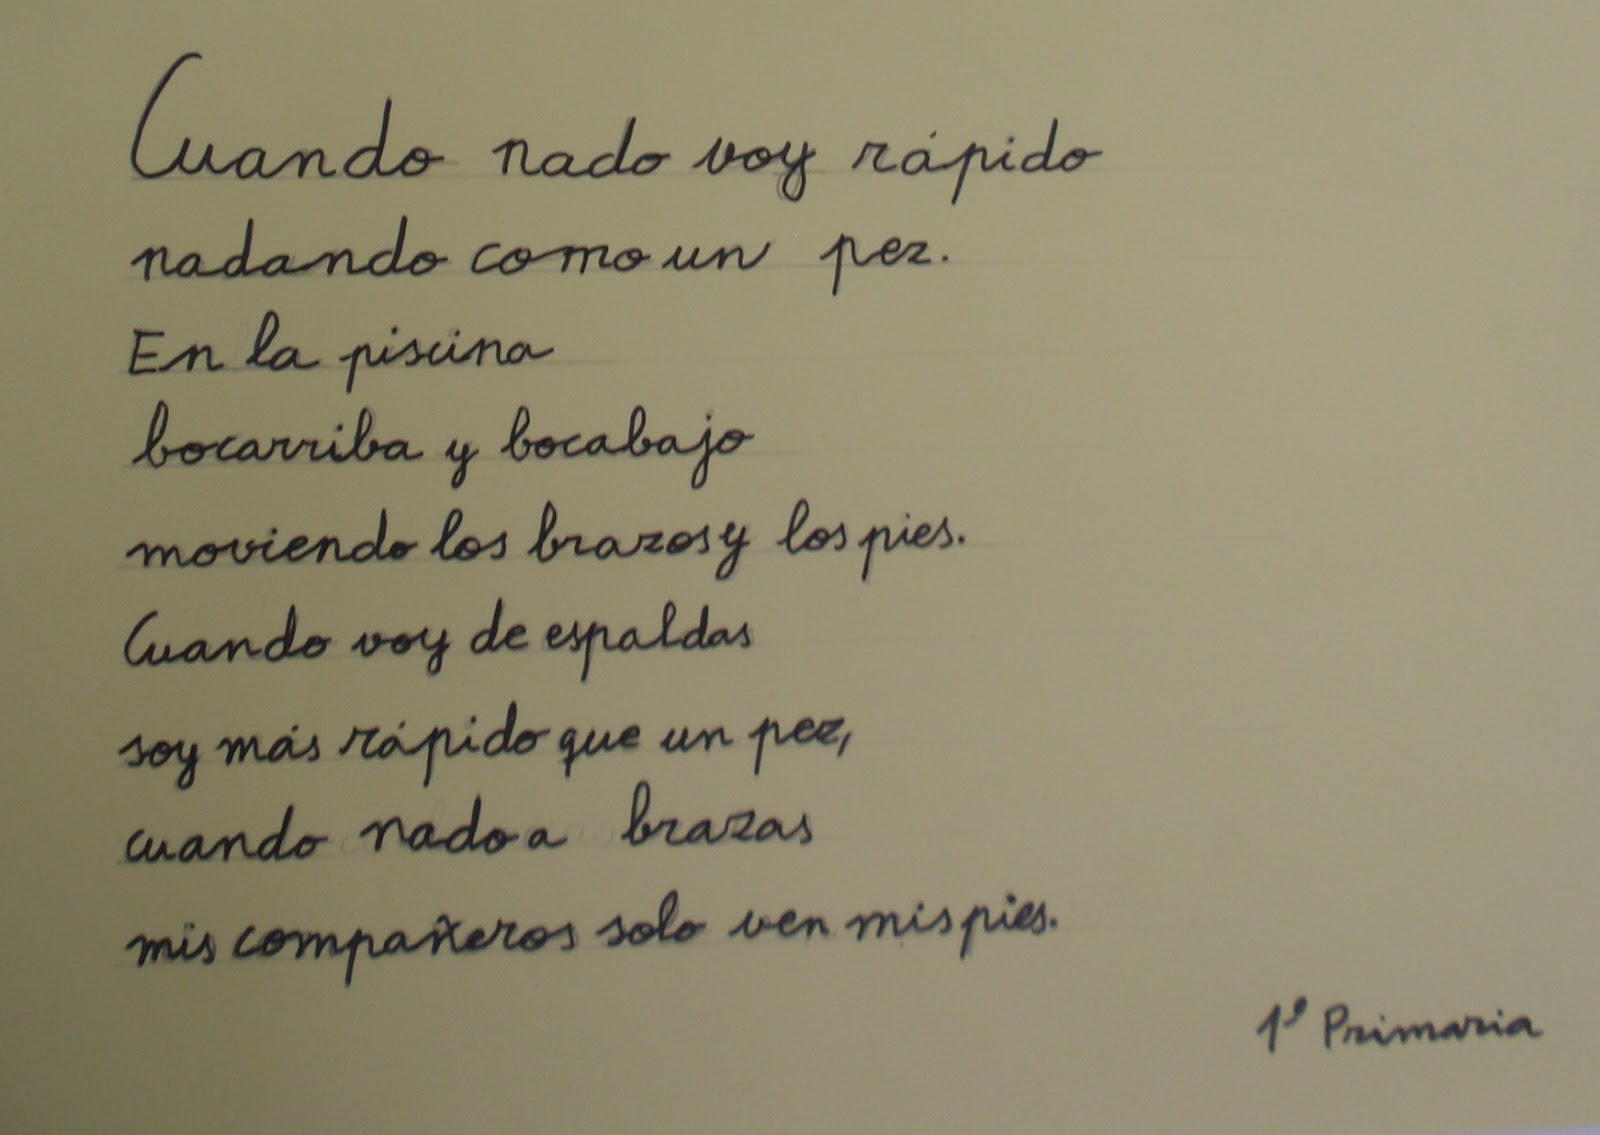 Cuando nado voy rápido
nadando como un pez.
En la piscina
bocarriba y bocabajo
moviendo los brazos y los pies.
Cuando voy de espaldas
soy más rápido que un pez,
cuando nado a brazas
mis compañeros solo ven mis pies.
1º Primaria